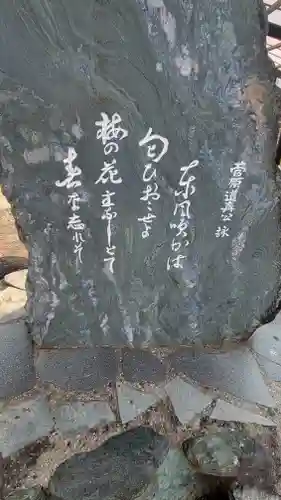 菅原道真公詠
東風吹かば
匂ひおこせよ
梅の花主なしとて
春な忘れそ